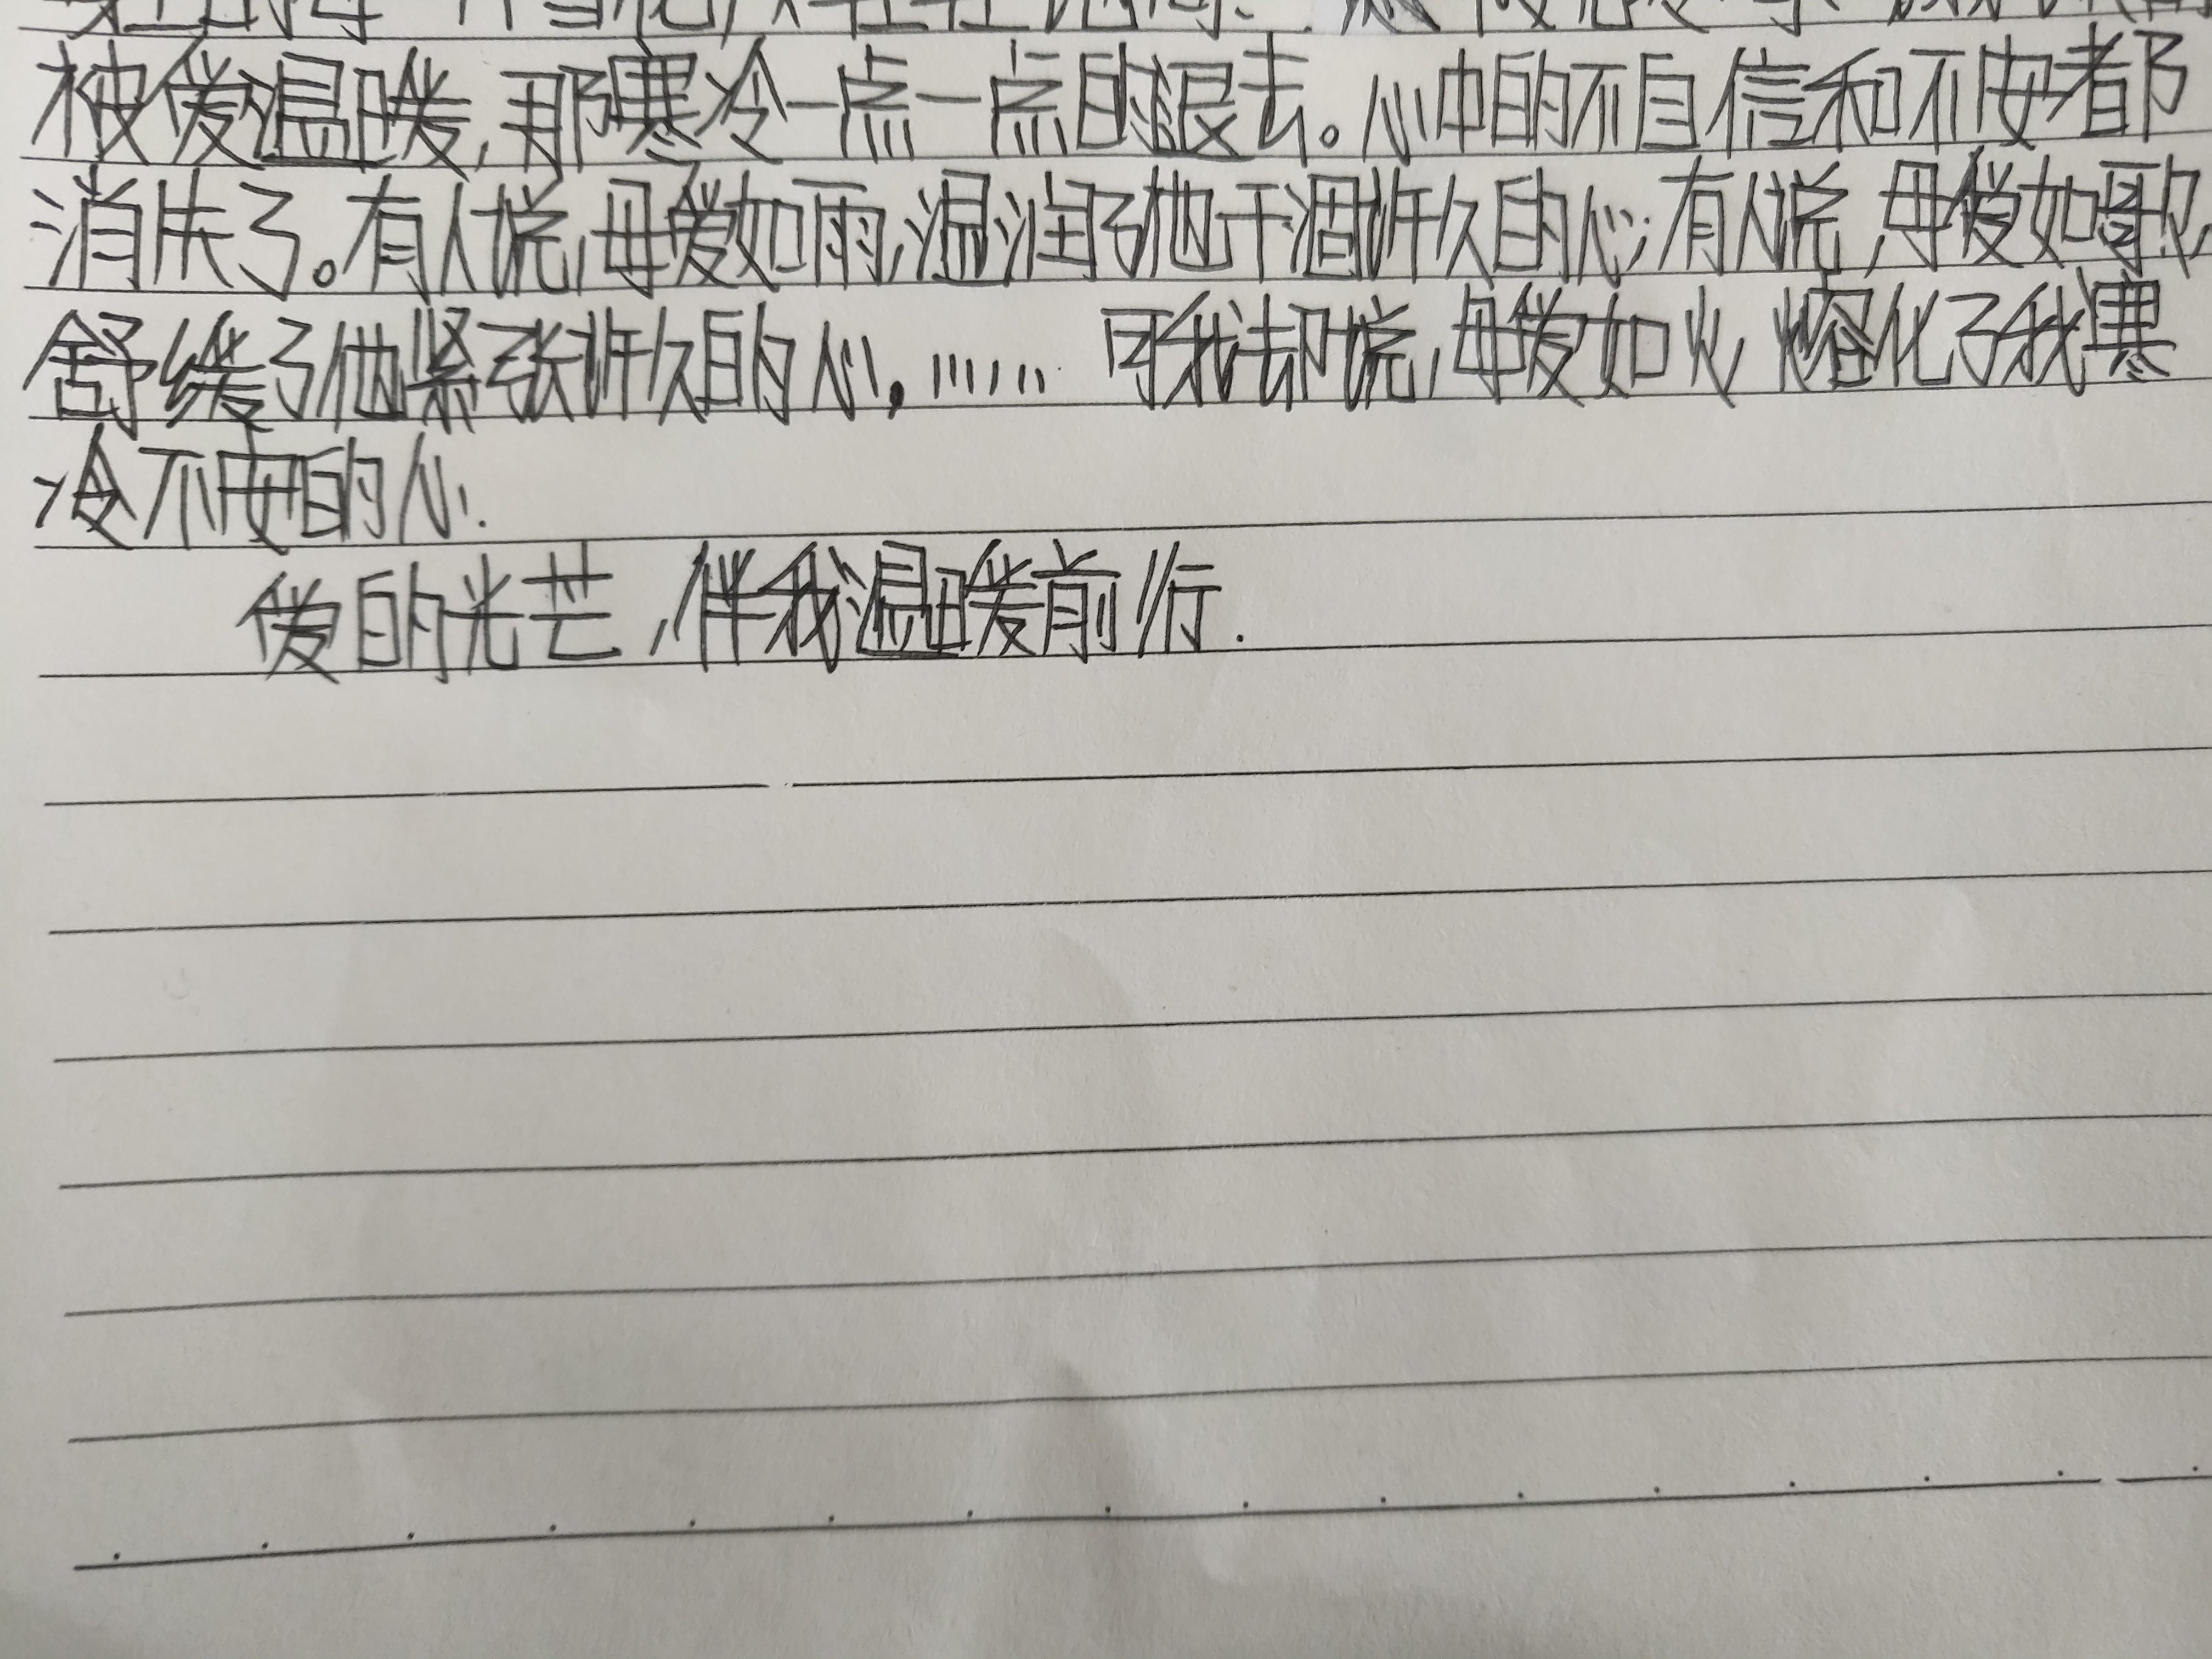 被爱温暖，那寒冷一点一点的退去。心中的不自信和不安都
消失了。有人说，母爱如雨，湿润了他干涸许久的心；有人说，母爱如歌，
舒缓了他紧张许久的心，…… 可我却说，母爱如火 熔化了我寒
冷不安的心.
爱的光芒，伴我温暖前行.